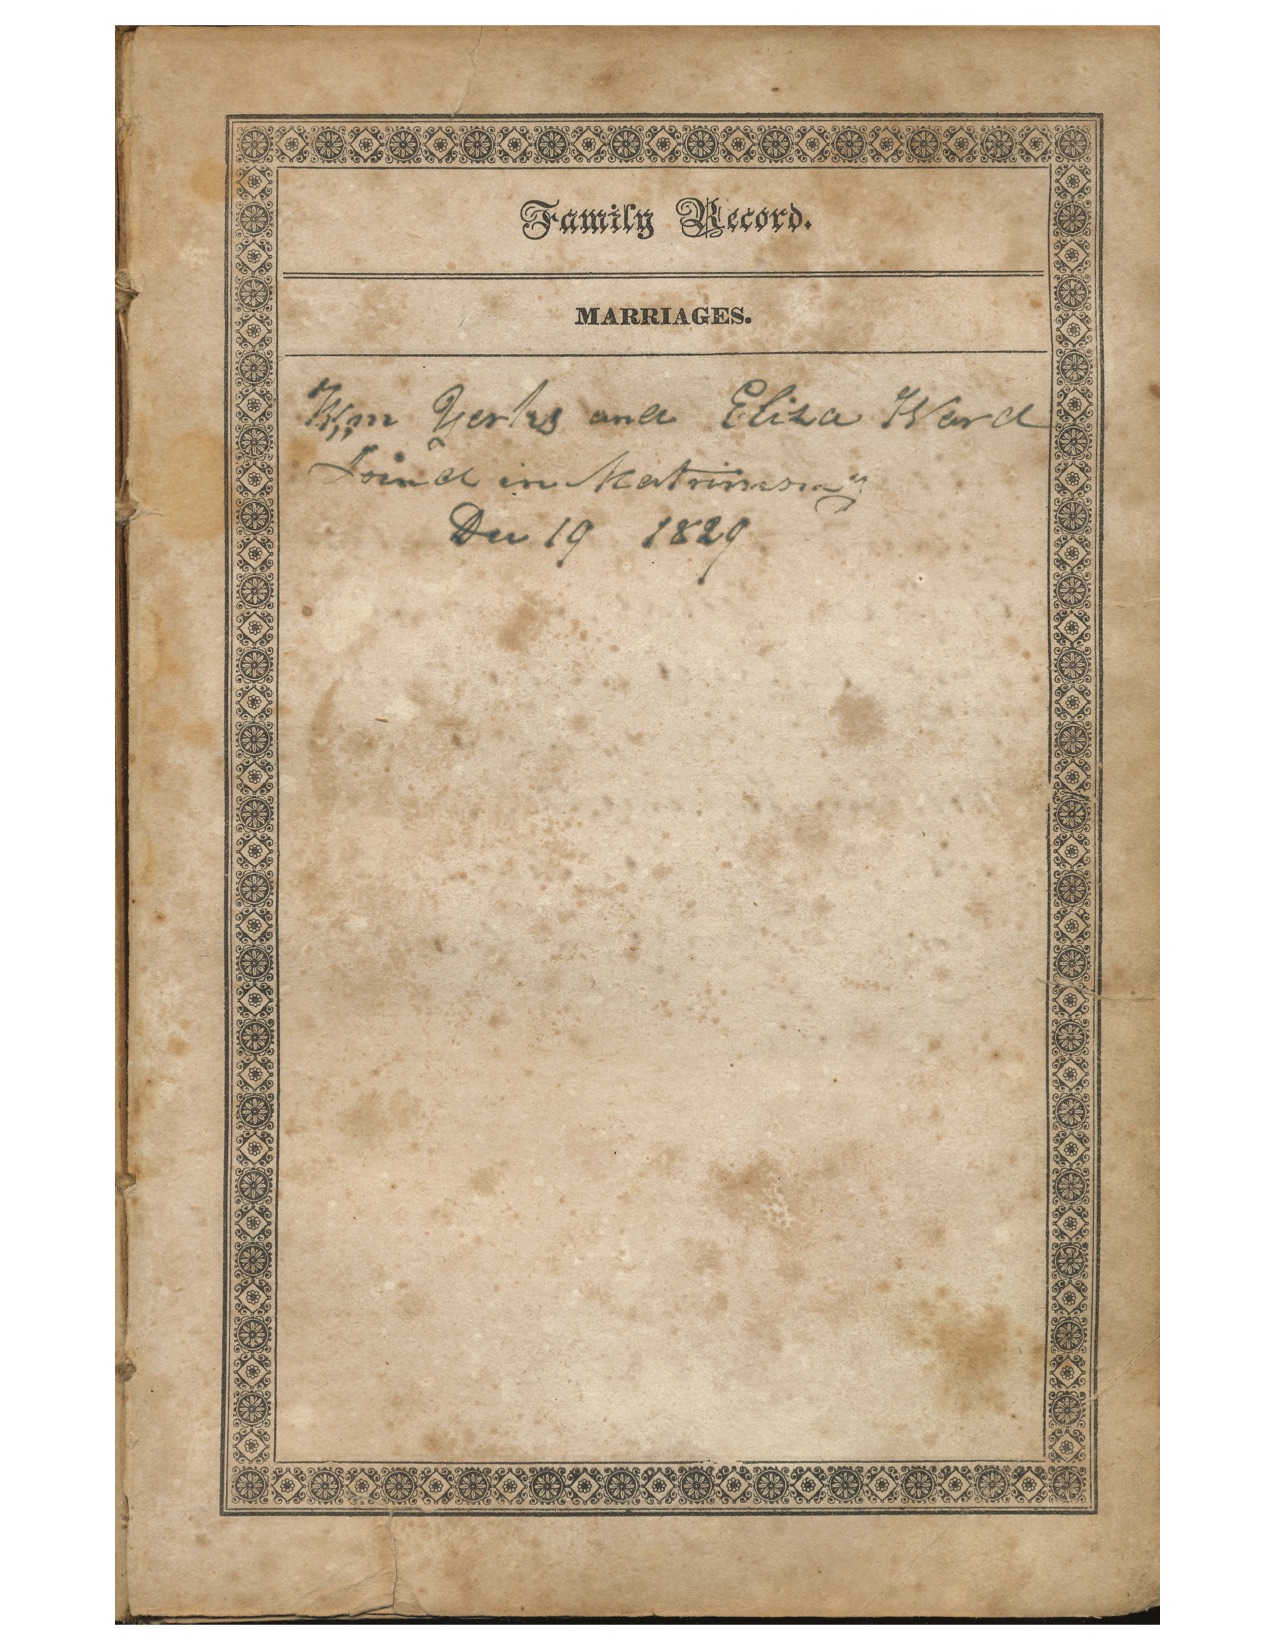 Family Record.
MARRIAGES.
Wm Yerks and Eliza Ward
Joind in Matrimony
Dec 19 1829